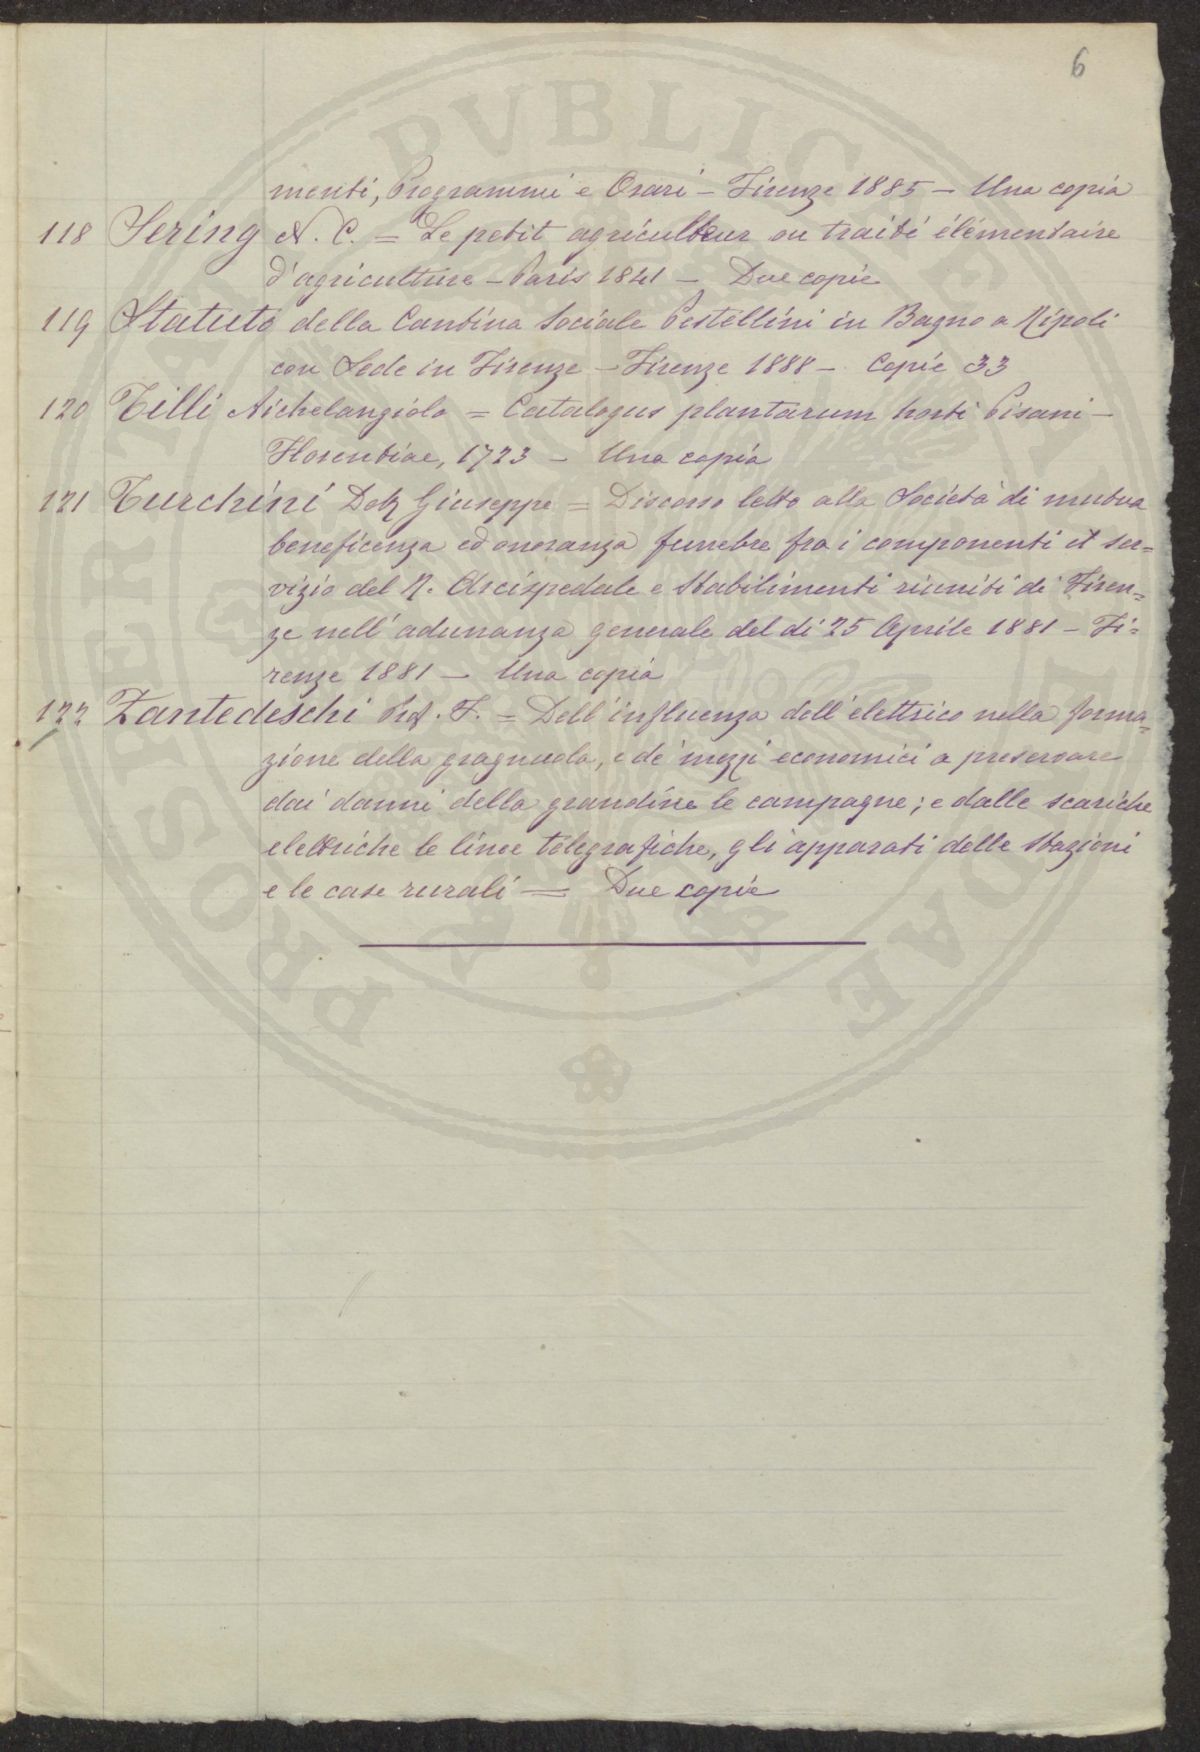 6
menti, Programmi e Orari - Firenze 1885 - Una copia
118 Sering N. C. = Le petit agriculteur ou traité élémentaire
d'agriculture - Paris 1841 - Due copie
119 Statuto della Cantina Sociale Pestellini in Bagno a Ripoli
con Sede in Firenze - Firenze 1888 - Copie 33
120 Tilli Michelangiolo = Catalogus plantarum horti Pisani -
Florentiae, 1723 - Una copia
121 Turchini Dott. Giuseppe = Discorso letto alla Società di mutua
beneficenza ed onoranza funebre fra i componenti il ser=
vizio del R. Arcispedale e Stabilimenti riuniti di Firen=
ze nell'adunanza generale del dì 25 Aprile 1881 - Fi=
renze 1881 - Una copia
122 Zantedeschi Prof. F. = Dell'influenza dell'elettrico nella forma=
zione della gragnuola, e de' mezzi economici a preservare
dai danni della grandine le campagne; e dalle scariche
elettriche le linee telegrafiche, gli apparati delle Stazioni
e le case rurali = Due copie